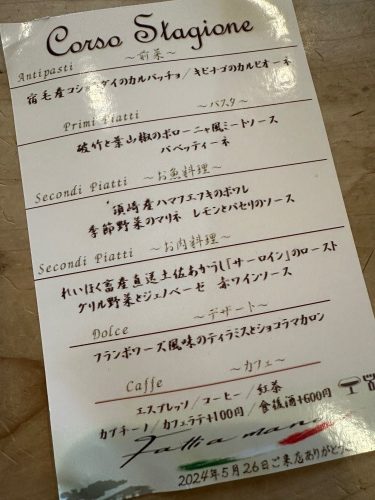 Corso Stagione
Antipasti ～前菜～
宿毛産コショウダイのカルパッチョ/キビナゴのカルピオーネ
Primi Piatti ～パスタ～
破竹と葉山椒のボローニャ風ミートソース
バベッティーネ
Secondi Piatti ～お魚料理～
須崎産ハマフエフキのポワレ
季節野菜のマリネ レモンとパセリのソース
Secondi Piatti ～お肉料理～
れいほく畜産直送土佐あかうし「サーロイン」のロースト
グリル野菜とジェノベーゼ 赤ワインソース
Dolce ～デザート～
フランボワーズ風味のティラミスとショコラマカロン
Caffe ～カフェ～
エスプレッソ/コーヒー/紅茶
カプチーノ/カフェラテ+100円/食後酒+600円
Fatti a man
2024年5月26日ご来店ありがとう